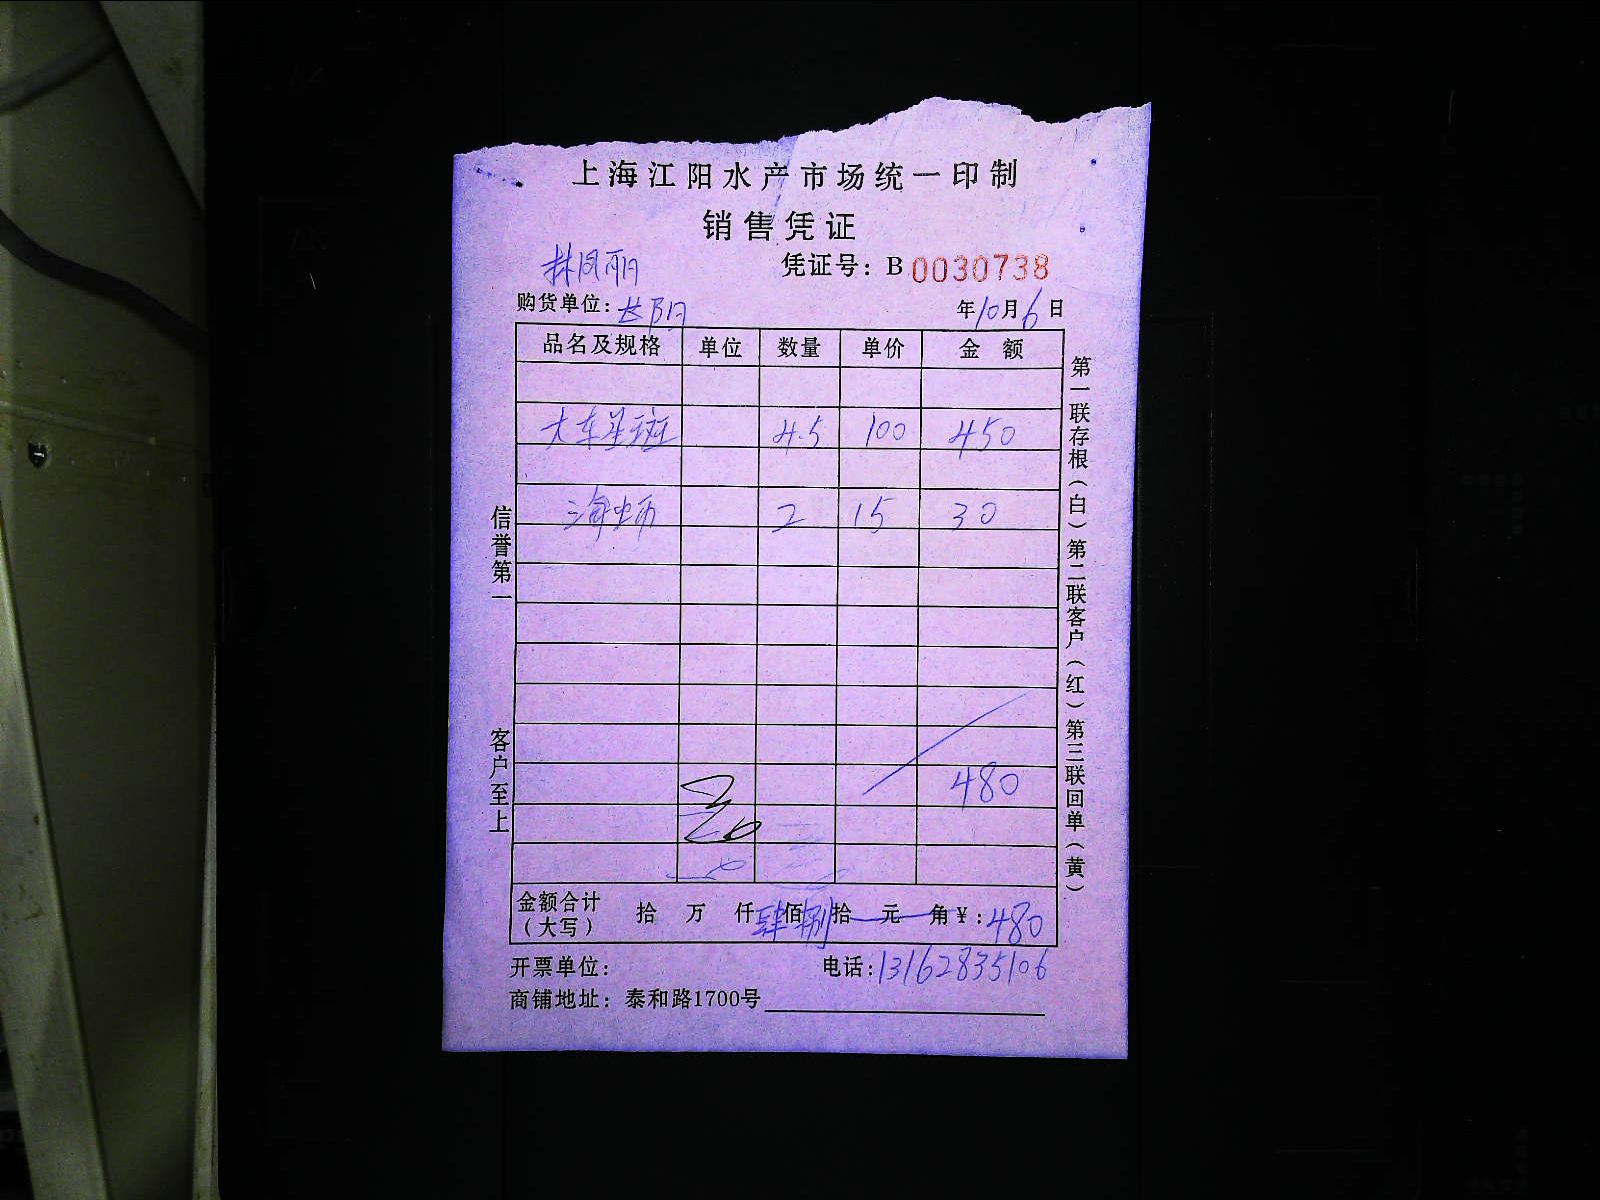 上海江阳水产市场统一印制
销售凭证
林凤丽 凭证号：B 0030738
购货单位：长阳 年10月6日
品名及规格 单位 数量 单价 金 额
大东星斑 4.5 100 450
海蛎 2 15 30
480
金额合计（大写） 拾 万 仟肆佰捌拾 元 角¥：480
开票单位： 电话：13162835106
商铺地址：泰和路1700号
信誉第一
客户至上
第一联存根（白）第二联客户（红）第三联回单（黄）